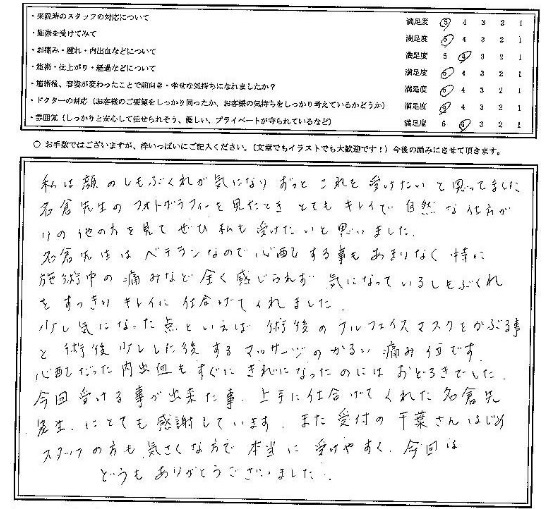 ・来院時のスタッフの対応について 満足度 5 4 3 2 1
・施術を受けてみて 満足度 5 4 3 2 1
・お痛み・腫れ・内出血などについて 満足度 5 4 3 2 1
・施術・仕上がり・経過などについて 満足度 5 4 3 2 1
・施術後、容姿が変わったことで前向き・幸せな気持ちになれましたか？ 満足度 5 4 3 2 1
・ドクターの対応（お客様のご要望をしっかり伺ったか、お客様の気持ちをしっかり考えているかどうか） 満足度 5 4 3 2 1
・雰囲気（しっかりと安心して任せられそう、優しい、プライベートが守られているなど） 満足度 5 4 3 2 1
○ お手数ではございますが、枠いっぱいにご記入ください。（文章でもイラストでも大歓迎です！）今後の励みにさせて頂きます。
私は顔のしもぶくれが気になり ずっと これを 受けたい と 思ってました
名倉先生の フォトギャラフィーを 見たとき とても キレイで 自然 な 仕方が
りの 他の方を 見て ぜひ 私も 受けたいと 思いました。
名倉先生は ベテランなので 心配する事も あまりなく 特に
施術中の 痛みなど 全く 感じられず 気になっている しもぶくれ
を すっきり キレイに 仕合げてくれました。
少し 気になった 点 といえば 術後の フルフェイスマスクをかぶる事
と 術後少しした後 する マッサージの かるい 痛み 位です。
心配だった 内出血も すぐに きれいに なったのには おどろきでした。
今回 受ける 事が 出来た事、上手に 仕合げて くれた 名倉先
先生、にとても 感謝しています。また 受付の 千葉さん はじめ
スタッフの方も 気さくな方で 本当に 受けやすく、今回は
どうも ありがとうございました。